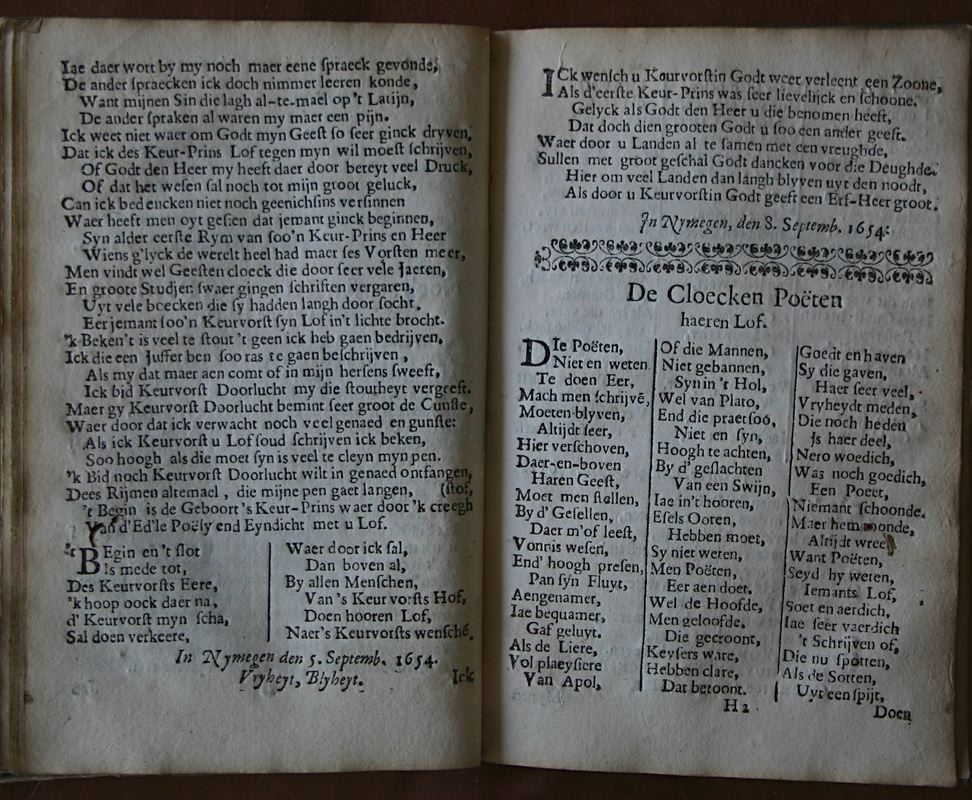 Iae daer wort by my noch maer eene spraeck gevonde,
De ander spraecken ick doch nimmer leeren konde,
Want mijnen Sin die lagh al-te-mael op't Latijn,
De ander spraken al waren my maer een pijn.
Ick weet niet waer om Godt myn Geest so seer ginck dryven,
Dat ick des Keur-Prins Lof tegen myn wil moest schrijven,
Of Godt den Heer my heeft daer door bereyt veel Druck,
Of dat het wesen sal noch tot mijn groot geluck,
Can ick bedencken niet noch geenichsins versinnen
Waer heeft men oyt gesien dat jemant ginck beginnen,
Syn alder eerste Rym van soo'n Keur-Prins en Heer
Wiens g'lyck de werelt heel had maer ses Vorsten meer,
Men vindt wel Geesten cloeck die door seer vele Jaeren,
En groote Studjen swaer gingen schriften vergaren,
Uyt vele boecken die sy hadden langh door socht.
Eer jemant soo'n Keurvorst syn Lof in't lichte brocht.
'k Beken't is veel te stout 't geen ick heb gaen bedrijven,
Ick die een Juffer ben soo ras te gaen beschrijven,
Als my dat maer aen comt of in mijn hersens sweeft,
Ick bid Keurvorst Doorlucht my die stoutheyt vergeeft.
Maer gy Keurvorst Doorlucht bemint seer groot de Cunste,
Waer door dat ick verwacht noch veel genaed en gunste:
Als ick Keurvorst u Lof soud schrijven ick beken,
Soo hoogh als die moet syn is veel te cleyn myn pen.
'k Bid noch Keurvorst Doorlucht wilt in genaed ontfangen,
Dees Rijmen altemael, die mijne pen gaet langen, (stof,
't Begin is de Geboort's Keur-Prins waer door 'k creegh
Van d'Ed'le Poësy end Eyndicht met u Lof.
't BEgin en 't slot
Is mede tot,
Des Keurvorsts Eere,
'k hoop oock daer na,
d' Keurvorst myn scha,
Sal doen verkeere,
Waer door ick sal,
Dan boven al,
By allen Menschen,
Van 's Keurvorsts Hof,
Doen hooren Lof,
Naer's Keurvorsts wensche,
In Nymegen den 5. Septemb. 1654.
Vryheyt, Blyheyt.
Ick
ICk wensch u Keurvorstin Godt weer verleent een Zoone,
Als d'eerste Keur-Prins was seer lievelijck en schoone.
Gelyck als Godt den Heer u die benomen heeft,
Dat doch dien grooten Godt u soo een ander geeft.
Waer door u Landen al te samen met een vreughde,
Sullen met groot geschal Godt dancken voor die Deughde.
Hier om veel Landen dan langh blyven uyt den noodt,
Als door u Keurvorstin Godt geeft een Erf-Heer groot.
In Nymegen, den 8. Septemb. 1654:
De Cloecken Poëten
haeren Lof.
DIe Poëten,
Niet en weten
Te doen Eer,
Mach men schrijvé,
Moeten blyven,
Altijdt seer,
Hier verschoven,
Daer-en-boven
Haren Geest,
Moet men stellen,
By d' Gesellen,
Daer m'of leest,
Vonnis wesen,
End' hoogh presen,
Pan syn Fluyt,
Aengenamer,
Iae bequamer,
Gaf geluyt.
Als de Liere,
Vol playsiere
Van Apol,
Of die Mannen,
Niet gebannen,
Syn in 't Hol,
Wel van Plato,
End die praetsoo,
Niet en syn,
Hoogh te achten,
By d' geslachten
Van een Swijn,
Iae in't hooren,
Esels Ooren,
Hebben moet,
Sy niet weten,
Men Poëten,
Eer aen doet.
Wel de Hoofde,
Men geloofde.
Die gecroont,
Keysers ware,
Hebben clare,
Dat betoont.
Goedt en haven
Sy die gaven,
Haer seer veel,
Vryheydt meden,
Die noch heden
Is haer deel,
Nero woedich,
Was noch goedich,
Een Poeet,
Niemant schoonde.
Maer hem woonde,
Altijdt wreet
Want Poëten,
Seyd hy weten,
Iemants Lof,
Soet en aerdich,
Iae seer vaerdich
't Schrijven of,
Die nu spotten,
Als de Sotten,
Uyt een spijt,
H 2
Doen